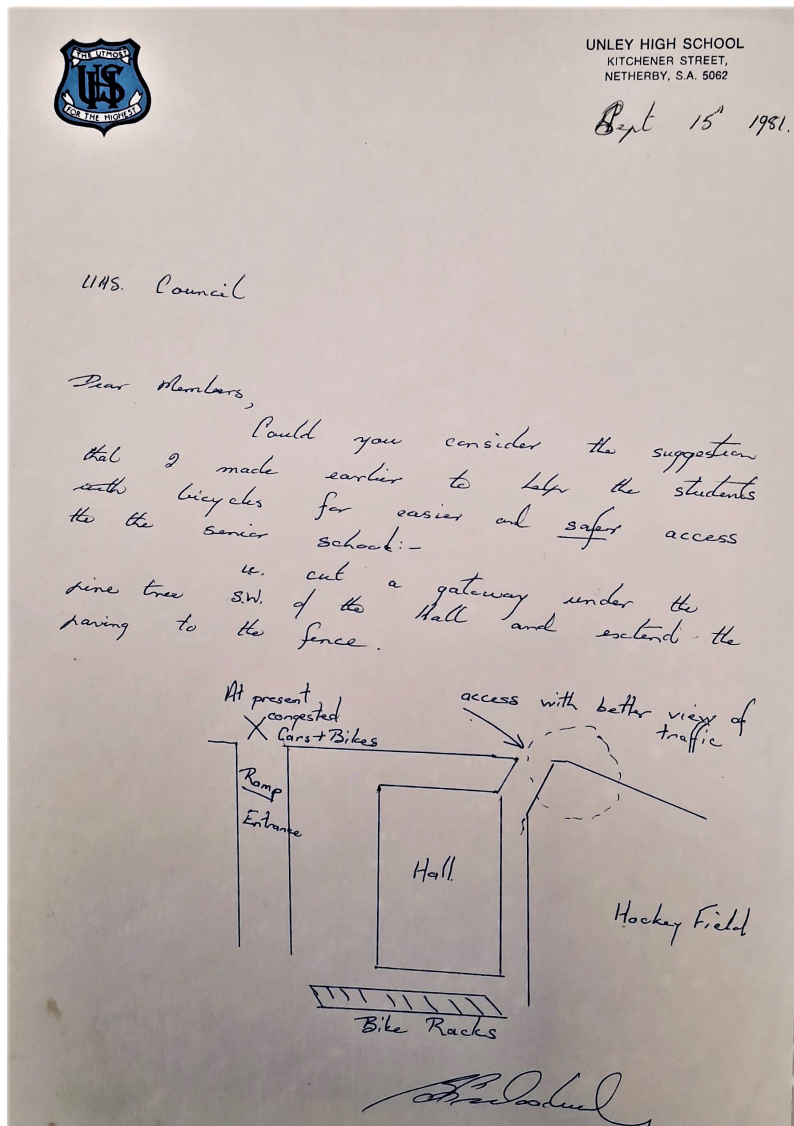 THE UTMOST
UHS
FOR THE HIGHEST
UNLEY HIGH SCHOOL
KITCHENER STREET,
NETHERBY, S.A. 5062
Sept 15th 1981.
UHS. Council
Dear Members,
Could you consider the suggestion
that I made earlier to help the students
with bicycles for easier and safer access
to the the senior school:-
ie. cut a gateway under the
pine tree S.W. of the Hall and extend the
paving to the fence.
At present
congested
Cars + Bikes
access with better view of
traffic
Ramp
Entrance
Hall
Hockey Field
Bike Racks